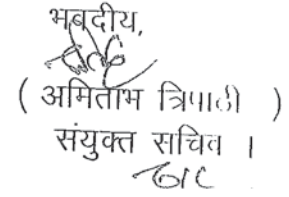 भवदीय,
( अमिताभ त्रिपाठी )
संयुक्त सचिव ।